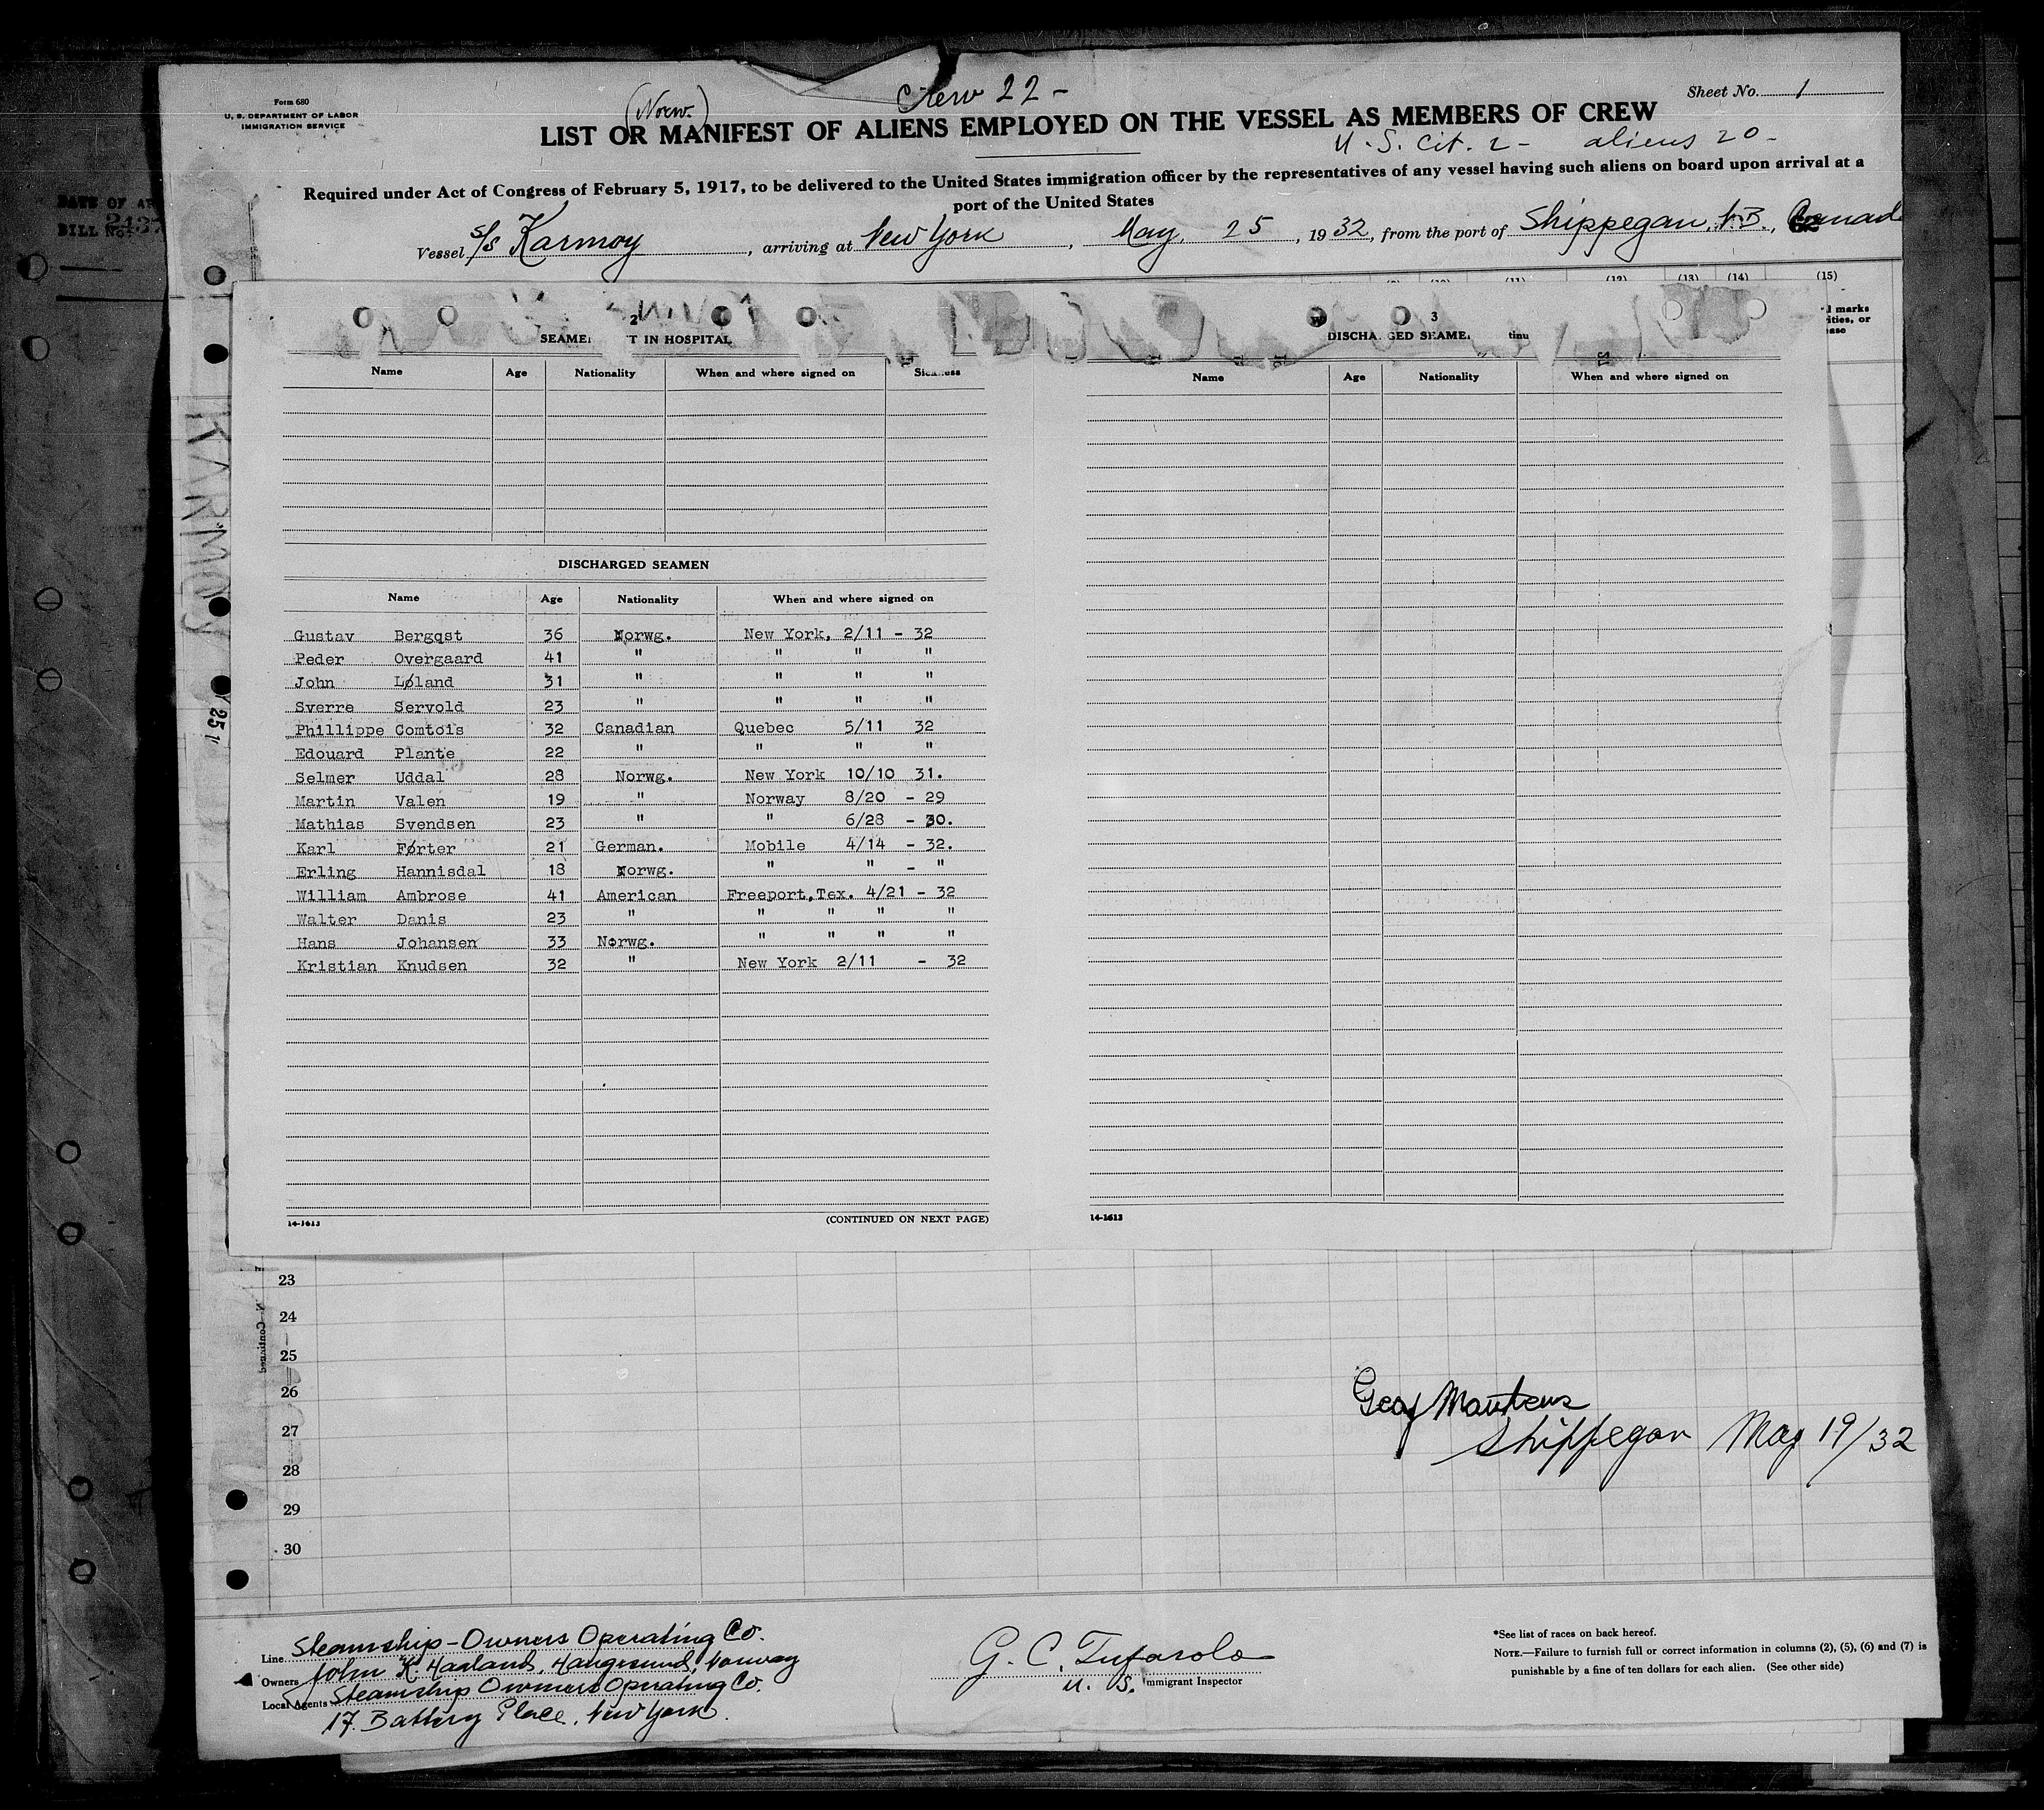 Form 680
U. S. DEPARTMENT OF LABOR
IMMIGRATION SERVICE
(Norw.)
Crew 22 -
Sheet No. 1
LIST OR MANIFEST OF ALIENS EMPLOYED ON THE VESSEL AS MEMBERS OF CREW
U. S. Cit. 2 - aliens 20 -
Required under Act of Congress of February 5, 1917, to be delivered to the United States immigration officer by the representatives of any vessel having such aliens on board upon arrival at a
port of the United States
Vessel S/S Karmoy, arriving at New York, May, 25, 1932, from the port of Shippegan, N.B., Canada
(13) (14) (15)
2
SEAMEN T IN HOSPITAL
Name Age Nationality When and where signed on Sickness
DISCHARGED SEAMEN
Name Age Nationality When and where signed on
Gustav Bergqst 36 Norwg. New York, 2/11 - 32
Peder Overgaard 41 " " " "
John Løland 31 " " " "
Sverre Servold 23 " " " "
Phillippe Comtois 32 Canadian Quebec 5/11 32
Edouard Plante 22 " " " "
Selmer Uddal 28 Norwg. New York 10/10 31.
Martin Valen 19 " Norway 8/20 - 29
Mathias Svendsen 23 " " 6/28 - 30.
Karl Førter 21 German. Mobile 4/14 - 32.
Erling Hannisdal 18 Norwg. " " - "
William Ambrose 41 American Freeport,Tex. 4/21 - 32
Walter Danis 23 " " " " "
Hans Johansen 33 Norwg. " " " "
Kristian Knudsen 32 " New York 2/11 - 32
14-1613 (CONTINUED ON NEXT PAGE)
3
DISCHA GED SEAMEN tinu
Name Age Nationality When and where signed on
14-1613
KARMOY
23
24
25
26
27
28
29
30
Shippegan May 19/32
Line Steamship-Owners Operating Co.
Owners John K. Haaland, Haugesund, Norway
Local Agents Steamship Owners Operating Co.
17. Battery Place, New York.
G. C. Tufarolo
U. S. Immigrant Inspector
*See list of races on back hereof.
NOTE.—Failure to furnish full or correct information in columns (2), (5), (6) and (7) is
punishable by a fine of ten dollars for each alien. (See other side)